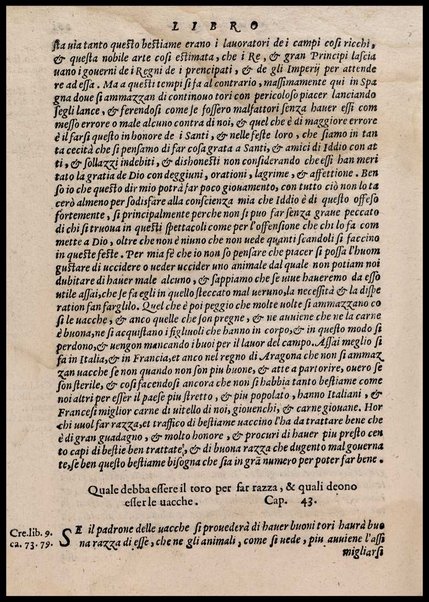 LIBRO
sta uia tanto questo bestiame erano i lauoratori de i campi cosi ricchi,
& questa nobile arte cosi estimata, che i Re, & gran Principi lascia
uano i gouerni de i Regni de i prencipati, & de gli Imperij per attende
re ad essa. Ma a questi tempi si fa al contrario, massimamente qui in Spa
gna doue si ammazzan di continouo tori con pericoloso piacer lanciando
segli lance, & ferendosi come se fossero malfattori senza hauer essi com
messo errore o male alcuno contra di noi, & quel che è di maggiore errore
è il farsi questo in honore de i Santi, & nelle feste loro, che siamo in tan
ta cecità che si pensamo di far cosa grata a Santi, & amici di Iddio con at
ti, & sollazzi indebiti, & dishonesti non considerando che essi han meri
tato la gratia de Dio con deggiuni, orationi, lagrime, & affettione. Ben
so io che questo dir mio potrà far poco giouamento, con tutto ciò non lo ta
cerò almeno per sodisfare alla conscienza mia che Iddio è di questo offeso
fortemente, si principalmente perche non si puo far senza graue peccato
di chi si truoua in questi spettacoli come per l'offensione che chi lo fa com
mette a Dio, oltre che non è niuno che non uede quanti scandoli si faccino
in queste feste. Per mia fè che io non so pensare che piacer si possa l'huom
gustare di uccidere o ueder uccidere uno animale dal quale non potiam noi
dubitare di hauer male alcuno, & sappiamo che se uiue haueremo da esso
utile assai, che se fa egli in quello steccato mal ueruno, la necessità & dispe
ration fan farglilo. Quel che è poi peggio che molte uolte si ammazzano co
si le uacche, & anco quelle che son pregne, & ne auuiene che ne la carne
è buona, ne si acquistano i figliuoli che hanno in corpo, & in questo modo si
perdono, & uengon mancando i buoi per il lauor del campo. Assai meglio si
fa in Italia, & in Francia, et anco nel regno di Aragona che non si ammaz
zan uacche se non quando non son piu buone, & atte a partorire, ouero se
son sterile, & cosi facendosi ancora che non si habbia tanto bestiame come
noi altri per esser il paese piu stretto, & piu popolato, hanno Italiani, &
Francesi miglior carne di uitello di noi, giouenchi, & carne giouane. Hor
chi uuol far razza, et traffico di bestiame uaccino l'ha da trattare bene che
è di gran guadagno, & molto honore, & procuri di hauer piu presto cen
to capi di bestie ben trattate, & di buona razza che dugento mal gouerna
te, se ben questo bestiame bisogna che sia in grã numero per poter far bene.
Quale debba essere il toro per far razza, & quali deono
esser le uacche. Cap. 43.
Cre. lib. 9.
ca. 73. 79.
SE il padrone delle uacche si prouederà di hauer buoni tori haurà buo
na razza di esse, che ne gli animali, come si uede, piu auuiene l'assi
migliarsi